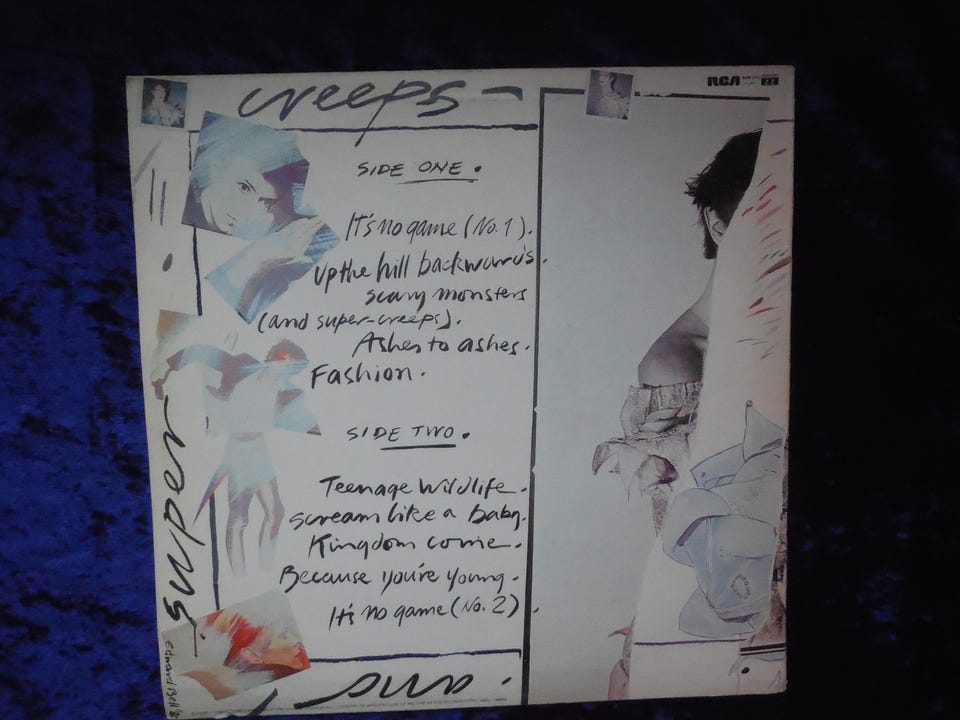 creeps -
RCA
SIDE ONE.
It's no game (No. 1).
Up the hill backwards.
scary monsters
(and super-creeps).
Ashes to ashes.
Fashion.
SIDE TWO.
Teenage Wildlife.
scream like a baby.
Kingdom come.
Because you're young.
It's no game (No. 2).
super
and
Edward Bell